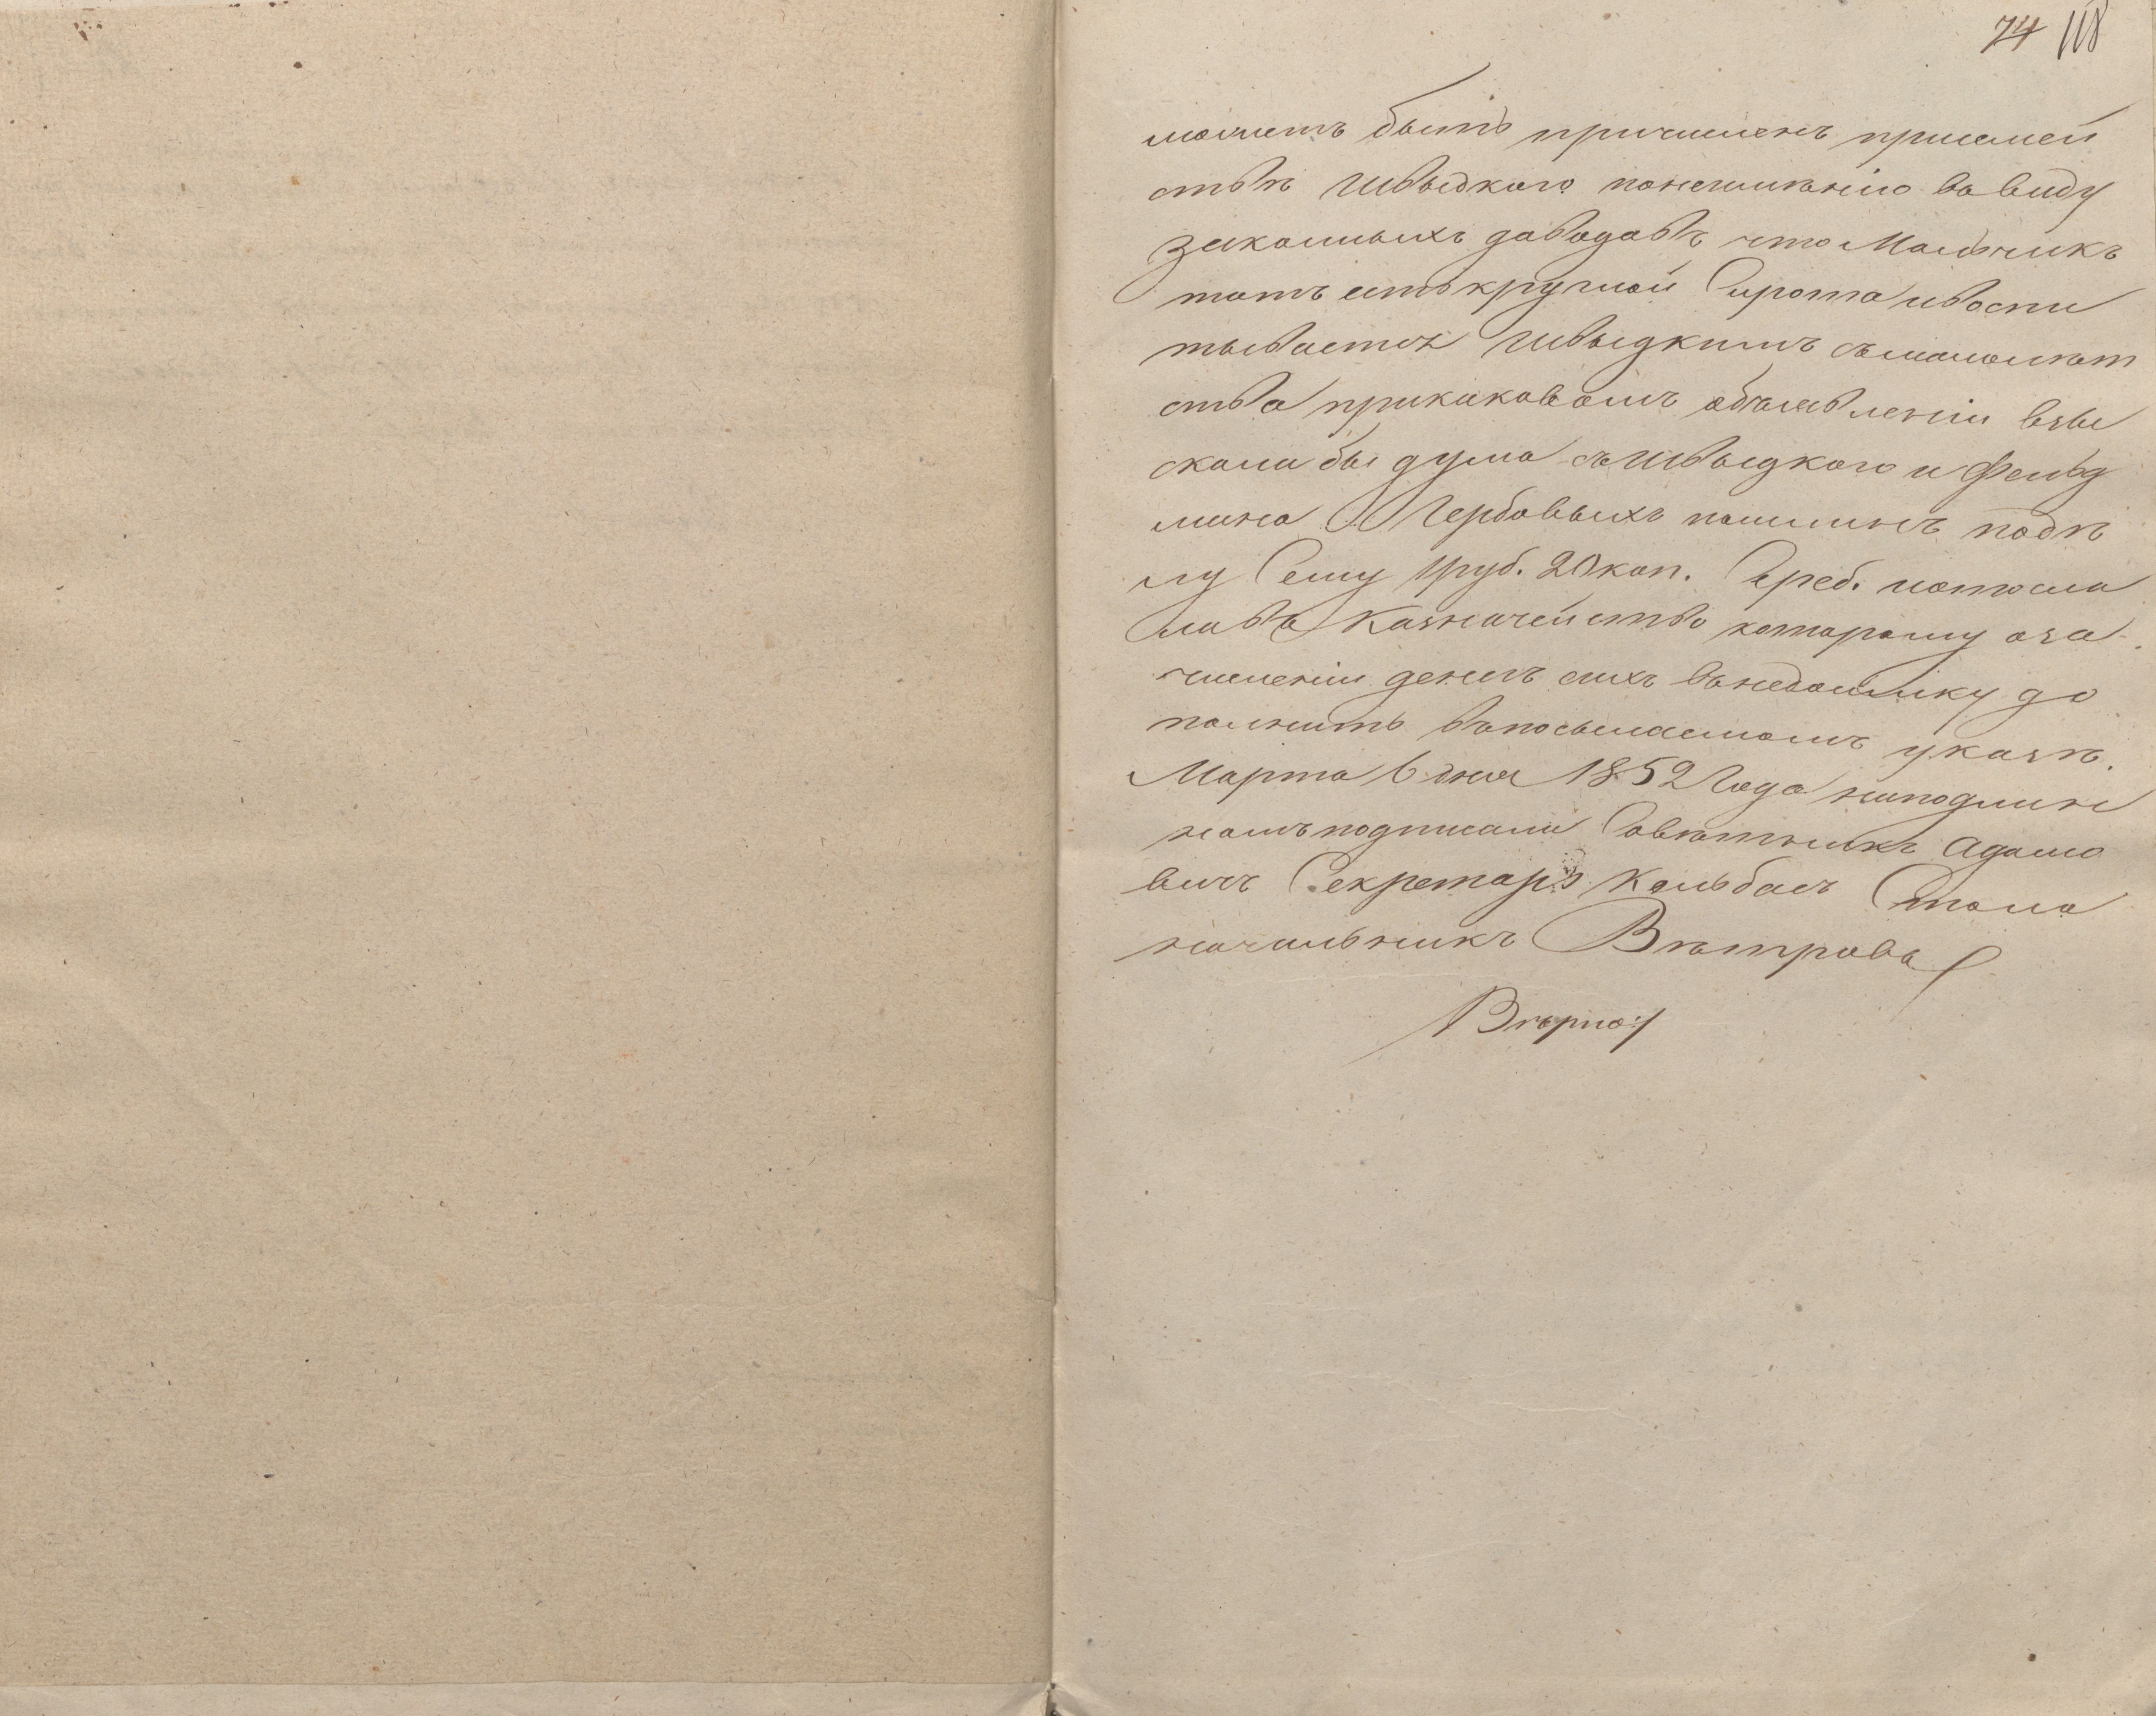 74 118
можетъ быть причисленъ присемей
ствѣ Швыдкого понеимѣнію ввиду
законныхъ доводовъ что Мальчикъ
тотъ есть круглой Сирота ивоспи
тывается Швыдкимъ съмалолѣт
ства прикаковомъ объявленіи взы
скала бы дума съ Швыдкого и Фельд
мана Гербовыхъ пошлинъ подѣ
лу Сему 1 руб. 20 коп. Сереб. иотосла
лабъ Казначейство которому оза
численіи денегъ сихъ внедоимку до
полнить въпосылаемомъ указѣ.
Марта 6 дня 1852 Года наподлин
номъ подписали Совѣтникъ Адамо
вичъ Секретарь Кольбасъ Столо
начальникъ Вѣтровъ
Вѣрно: